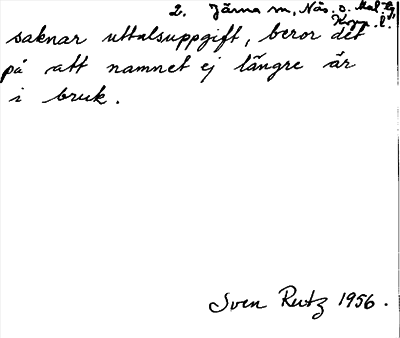 2. Järna sn, Näs. o. Mal. tg,
Kopp. l.
saknar uttalsuppgift, beror det
på att namnet ej längre är
i bruk.
Sven Rutz 1956.